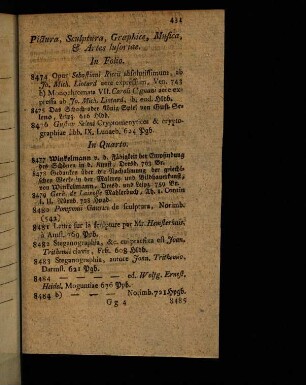 Pictura, Sculptura, Graphice, Musica,
& Artes lusoriae.
In Folio.
8474 Opus Sebastiani Ricii absolutissimum, ab
Jo. Mich. Liotard aere expressum, Ven. 743
b) Monochromata VII. Caroli Cignani aere ex-
pressa ab Jo. Mich. Liotard, ib. eod. Hlbb.
8475 Das Schach- oder König-Spiel von Gust. Se-
leno, Leipz. 616 Hbd.
8476 Gustav Seleni Cryptomenytices & crypto-
graphiae libb. IX, Lunaeb. 624 Pgb.
In Quarto.
8477 Winkelmann v. d. Fähigkeit der Empfindung
des Schönen in d. Kunst, Dresd. 763 Br.
8478 Gedanken über die Nachahmung der griechi-
schen Werke in der Malerey und Bildhauerkunst
von Winkelmann, Dresd. und Leipz.
8479 Gerh. de Lairesse Mahlerbuch,
8480 Pomponii Gaurici de sculptura, Norimb.
(542)
8481 Lettre sur la sculpture par Mr. Hemsterhuis,
à Amst. 769 Ppb.
8482 Steganographia,
Trithemii clavis, Fcft. 608 Hldb.
8483 Steganographia, autore Joan. Trithemio,
Darmst. 621 Pgb.
8484 — — ed. Wolfg. Ernst,
Heidel, Moguntiae 676 Ppb.
8484 b) — — Norimb. 721 Hpgb.
Gg 4
8485